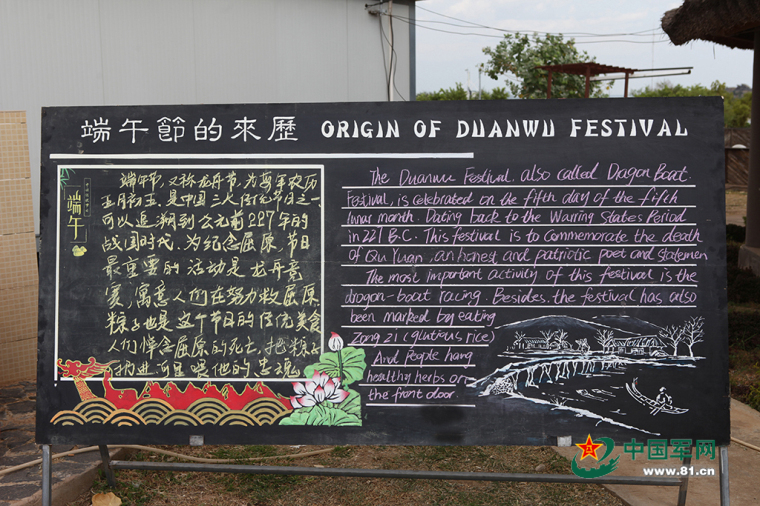 端午節的來歷 ORIGIN OF DUANWU FESTIVAL
端午
端午节，又称龙舟节，为每年农历
五月初五，是中国三大传统节日之一，
可以追溯到公元前227年的
战国时代，为纪念屈原，节日
最重要的活动是龙舟竞
赛，寓意人们在努力救屈原，
粽子也是这个节日的传统美食
人们悼念屈原的死亡，把粽子
扔进河里喂他的
The Duanwu Festival, also called Dragon Boat
Festival, is celebrated on the fifth day of the fifth
lunar month. Dating back to the Warring States Period
in 227 B.C. This festival is to commemorate the death
of Qu Yuan, an honest and patriotic poet and statemen
The most important activity of this festival is the
dragon-boat racing. Besides, the festival has also
been marked by eating
Zong zi (glutious rice)
And people hang
healthy herbs on
the front door.
中国军网
www.81.cn